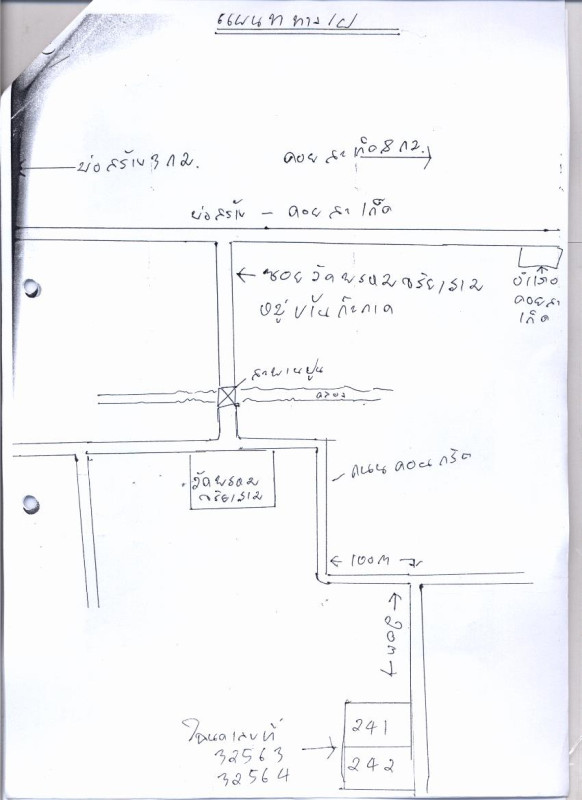 แผนที่ทางไป
บ่อสร้าง 3 กม.
ดอยสะเก็ด 8 กม.
บ่อสร้าง - ดอยสะเก็ด
ซอยวัดพรหมจริยาราม
หมู่บ้าน
อำเภอ
ดอยสะ
เก็ด
สะพานปูน
คลอง
วัดพรหม
จริยาราม
ถนนคอนกรีต
100 ม
โฉนดเลขที่
32563
32564
241
242